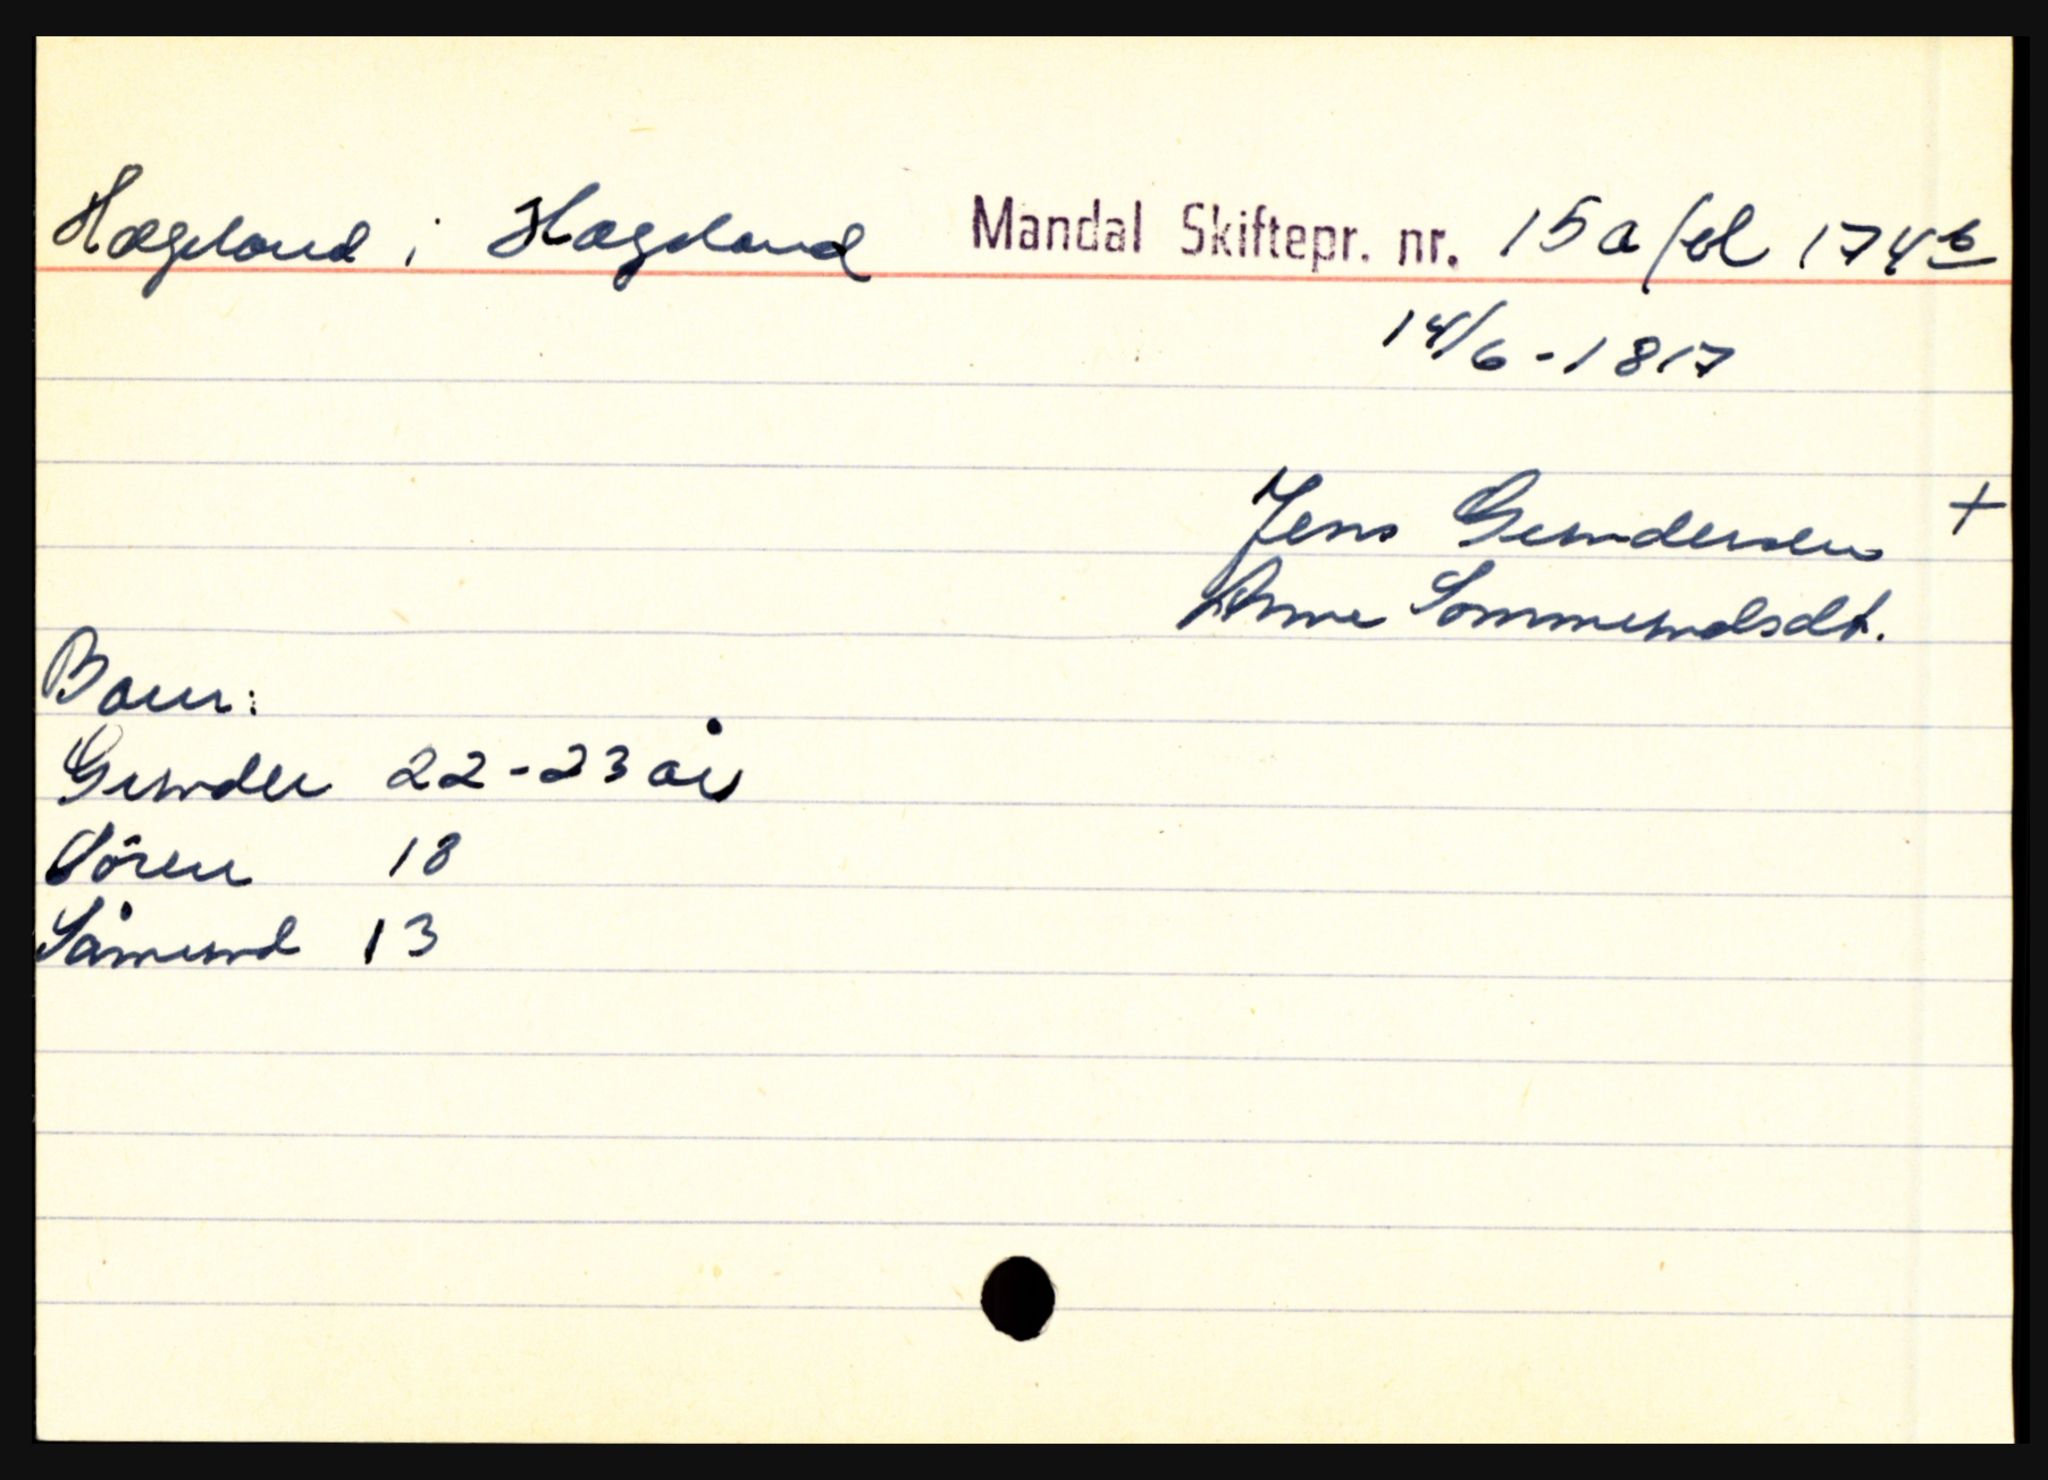 Hægeland i Hægeland Mandal Skiftepr. nr. 15 a fol 174 b
14/6 - 1817
Jens Gundersen +
Anne Sommundsdt.
Barn:
Gunder 22-23 år
Sören 18
Såmund 13